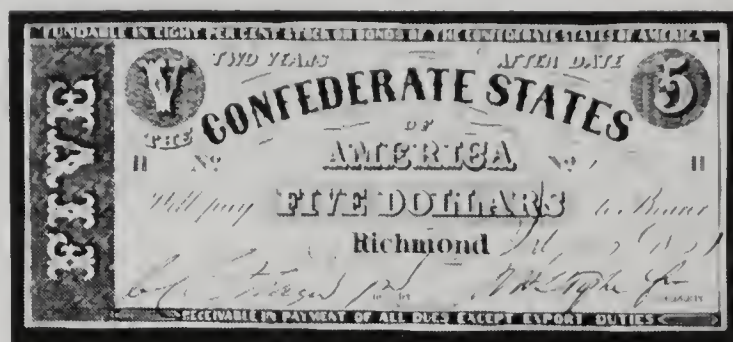 FUNDABLE IN EIGHT PER CENT STOCK OR BONDS OF THE CONFEDERATE STATES OF AMERICA
FIVE
V TWO YEARS AFTER DATE 5
THE CONFEDERATE STATES
OF
H No AMERICA No H
Will pay FIVE DOLLARS to Bearer
Richmond
RECEIVABLE IN PAYMENT OF ALL DUES EXCEPT EXPORT DUTIES